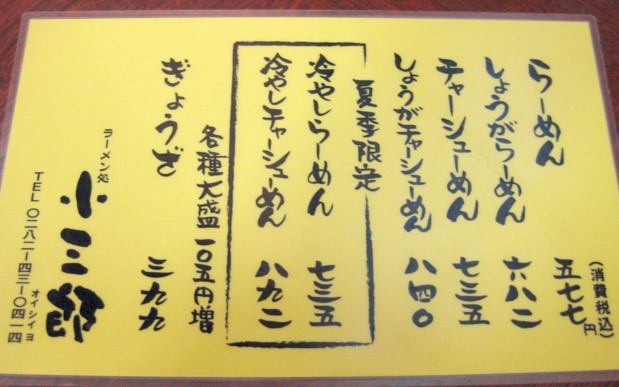 (消費税込)
らーめん 五七七円
しょうがらーめん 六八二
チャーシューめん 七三五
しょうがチャーシューめん 八四〇
夏季限定
冷やしらーめん 七三五
冷やしチャーシューめん 八九二
各種大盛一〇五円増
ぎょうざ 三九九
ラーメン処
小三郎
オイシイヨ
TEL〇二八二ー四三ー〇四一四